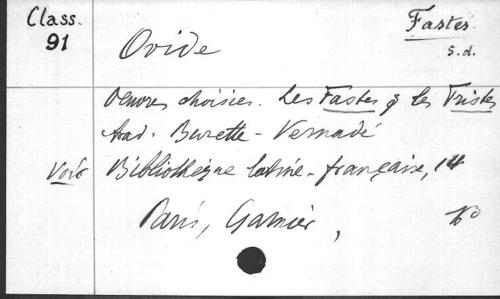 Class.
91
Ovide
Fastes
s.d.
Oeuvres choisies. Les Fastes & les Tristes
trad. Burette - Vernadé
Voir Bibliothèque latine-française, 14
Paris, Garnier,